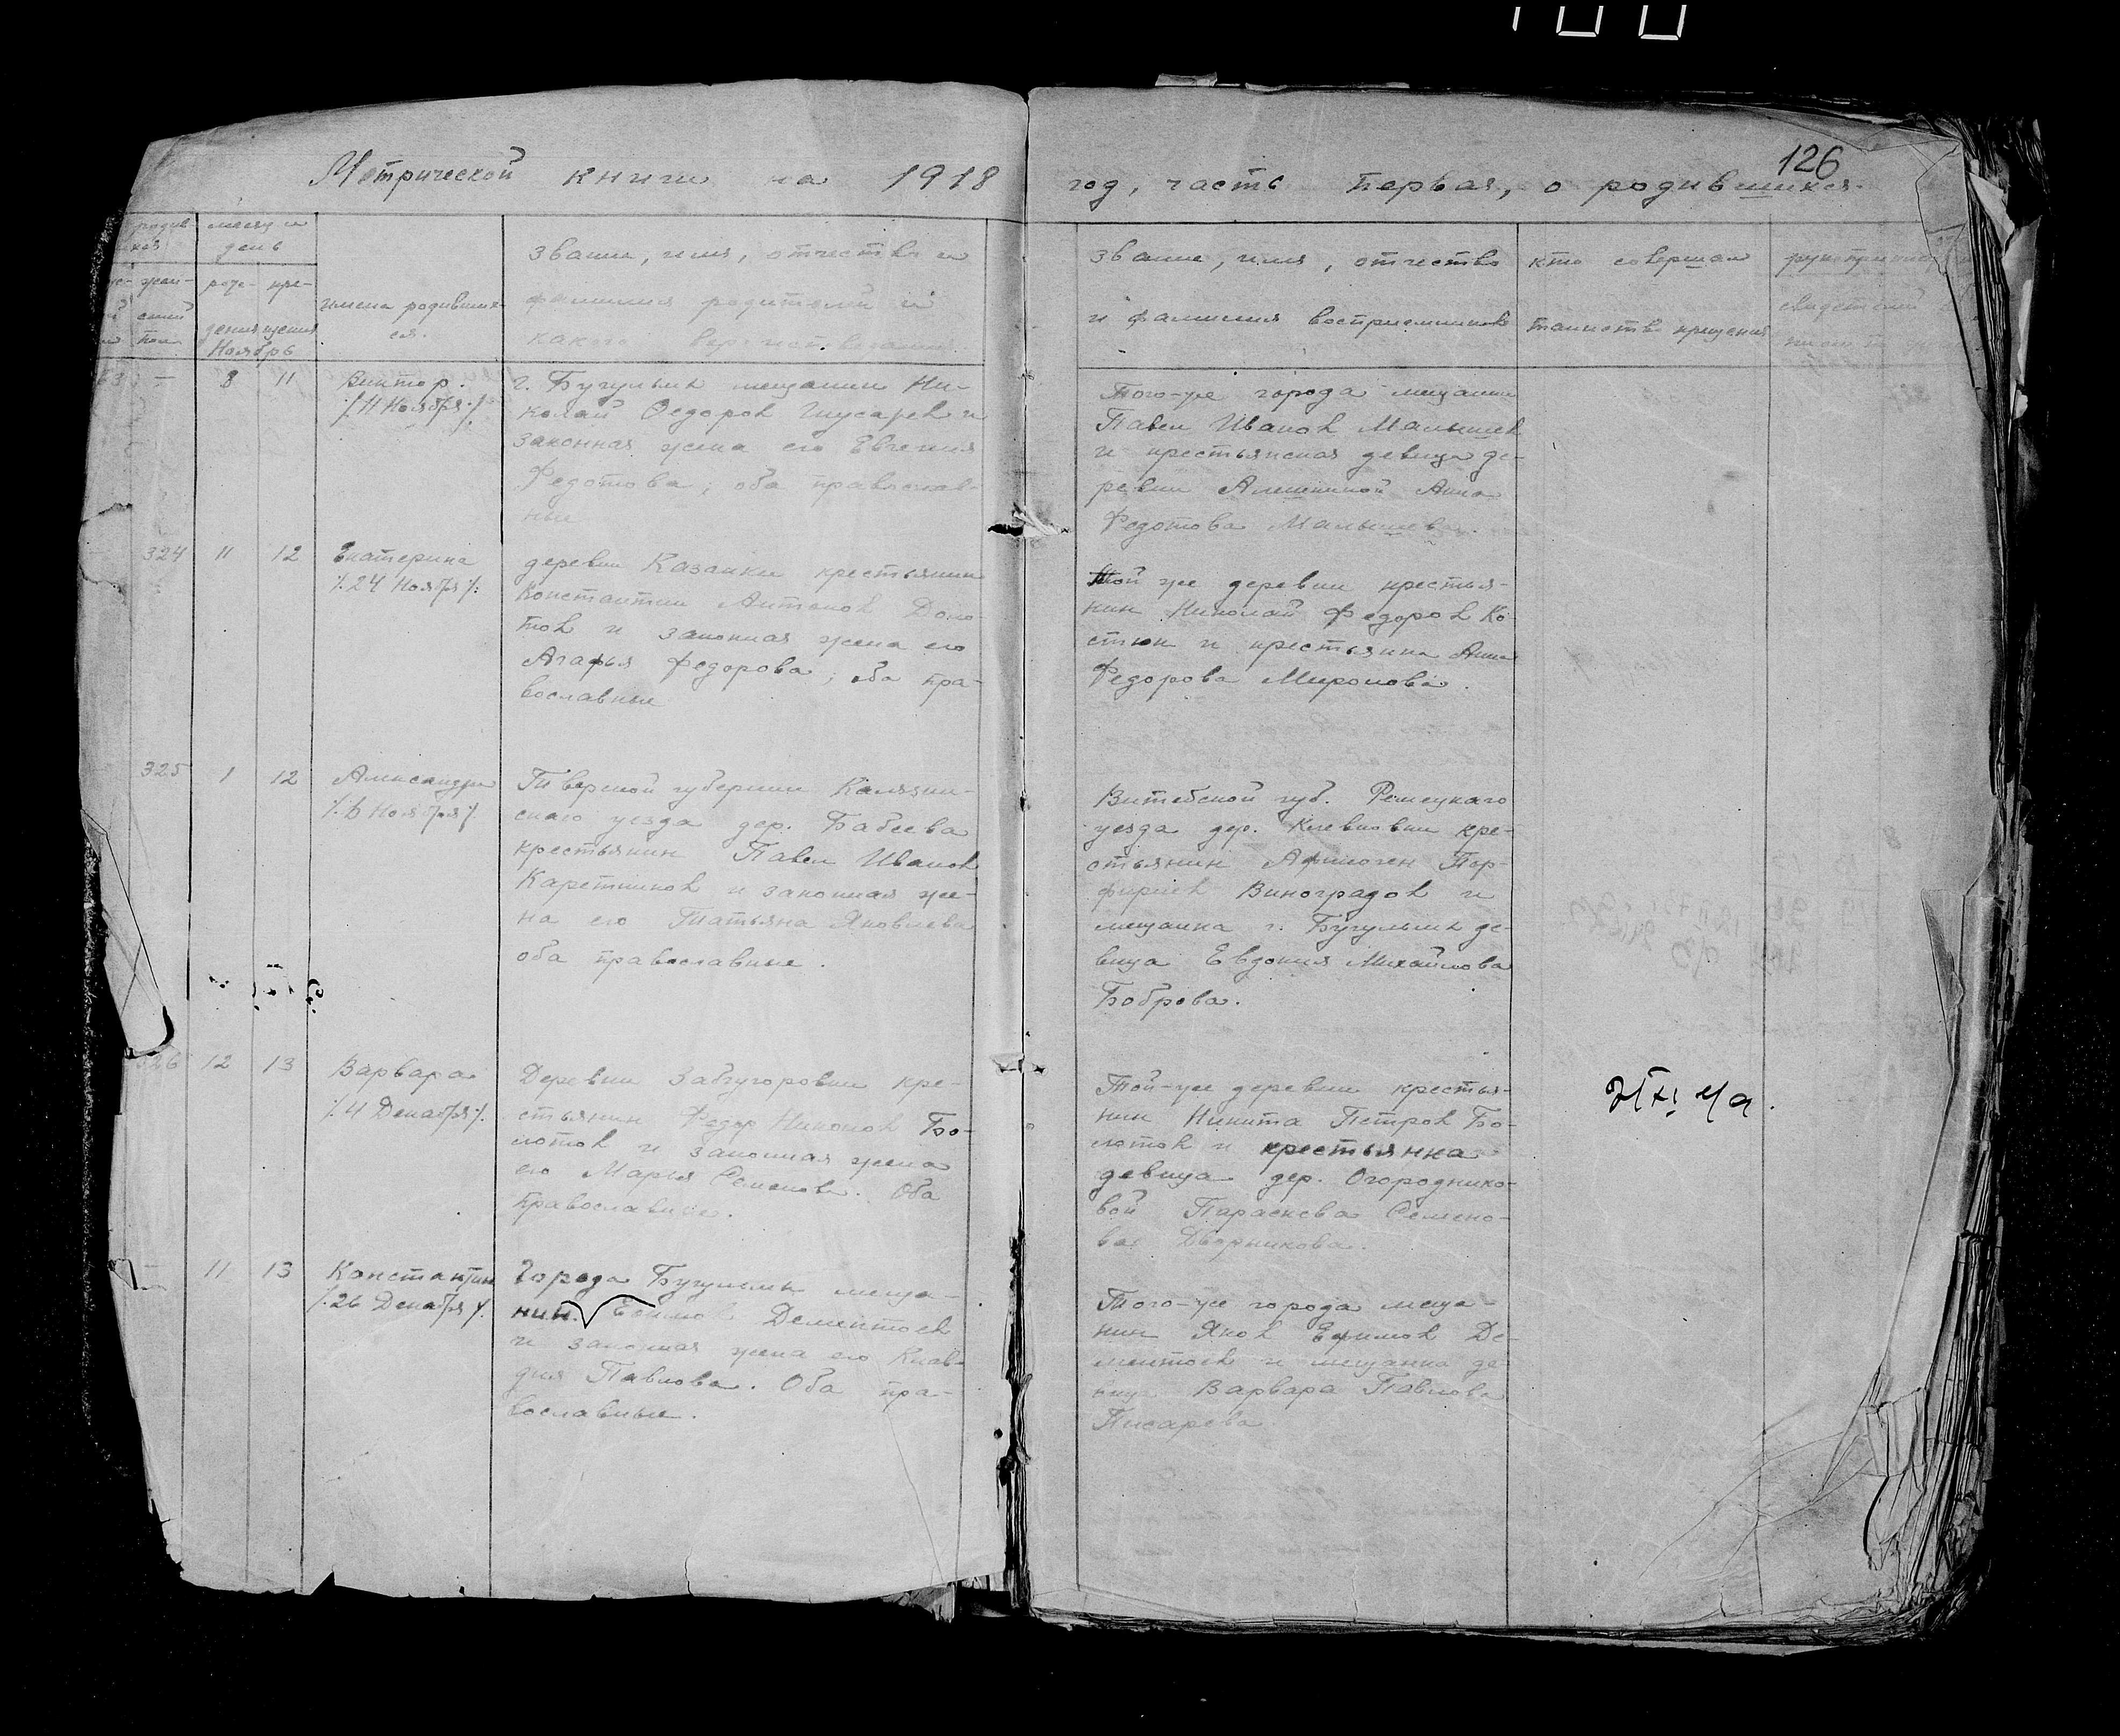 126
Метрической книги на 1918
год, часть первая, о родившихся.
месяц и
день
рож- кре-
дения щения
Ноябрь
имена родивших-
ся.
звание, имя, отчество и
фамилия родителей и
какого вероисповедания
звание, имя, отчество
и фамилия восприемников
кто совершал
таинство крещения
63 — 8 11
Виктор.
/.11 Ноября./
г. Бугульмы мещанин Ни-
колай Федоров Гусарев и
законная жена его Евгения
Федотова; оба православ-
ные
Того-же города мещанин
Павел Иванов Малышев
и крестьянская девица де-
ревни Алешкиной Анна
Федотова Малышева.
324 11 12
Екатерина
/.24 Ноября/.
деревни Казанки крестьянин
Константин Антонов Доло-
тов и законная жена его
Агафья Федорова; оба пра-
вославные
Той же деревни крестья-
нин Николай Федоров Ко
стюк и крестьянка Анна
Федорова Миронова.
325 1 12
Александра
/.6 Ноября/.
Тверской губернии Калязин-
скаго уезда дер. Бабеева
крестьянин Павел Иванов
Каретников и законная же-
на его Татьяна Яковлева
оба православные.
Витебской губ. Режецкаго
уезда дер. кре-
стьянин Афиноген Пор-
фирьев Виноградов и
мещанка г. Бугульмы де-
вица Евдокия Михайлова
Боброва.
326 12 13
Варвара
/.4 Декабря/.
Деревни Забугоровки кре-
стьянин Федор Никонов Бо-
лотов и законная жена
его Марья Семенова. Оба
православные.
Той-же деревни крестья-
нин Никита Петров Бо-
лотов и крестьянка
девица дер. Огороднико-
вой Параскева Семено-
ва Дворникова.
— 11 13
Константин
/.26 Декабря/.
Города Бугульмы меща-
нин Ефимов Дементьев
и законная жена его Клав-
дия Павлова. Оба пра-
вославные.
Того-же города меща-
нин Яков Ефимов Де-
ментьев и мещанка де-
вица Варвара Павлова
Писарева